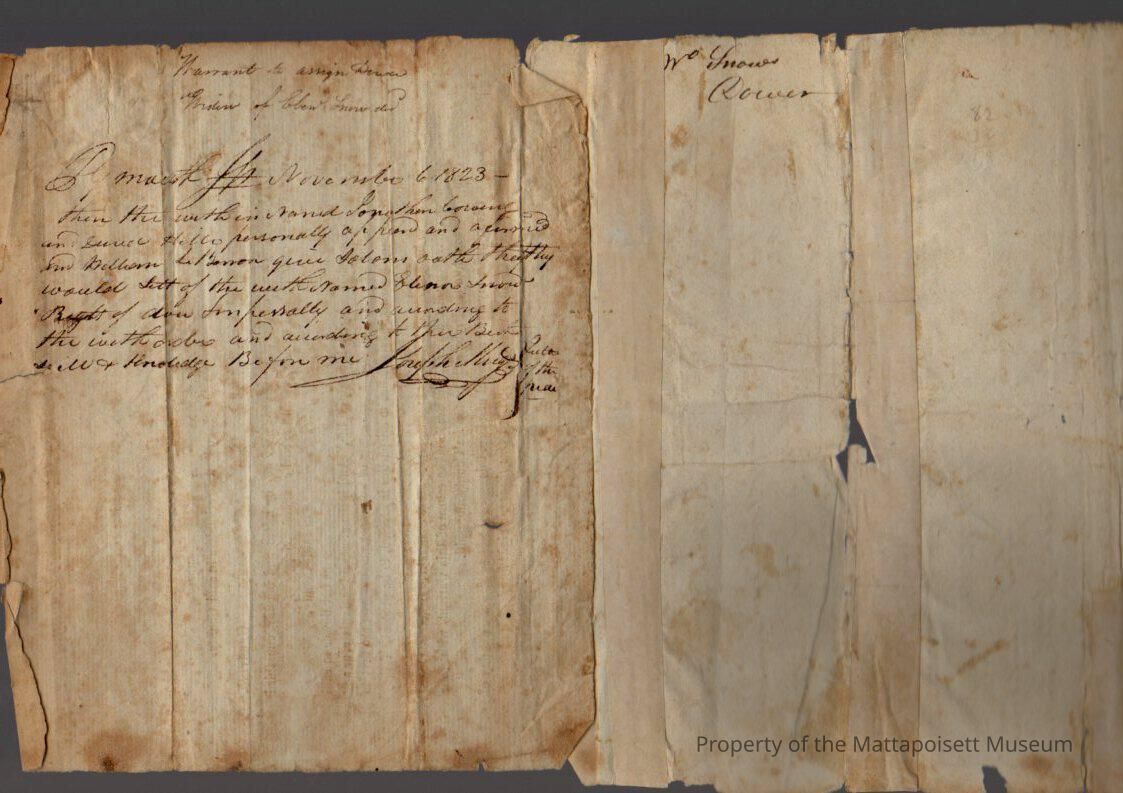 Warrant to assign Dower
Widow of Eben Snow decd
Plymouth SSt November 6 1823 —
then the with in Named Jonathan Cowing
and Hiller personally appeard and
and William LeBaron give Solom oath that they
would Sett of the with Named Elenor Snow
Right of dow Imperssally and acording to
the with order and acording to their Best
& Knoledge Before me Joseph
of the
peace
Wo Snows
Dower
82
Property of the Mattapoisett Museum